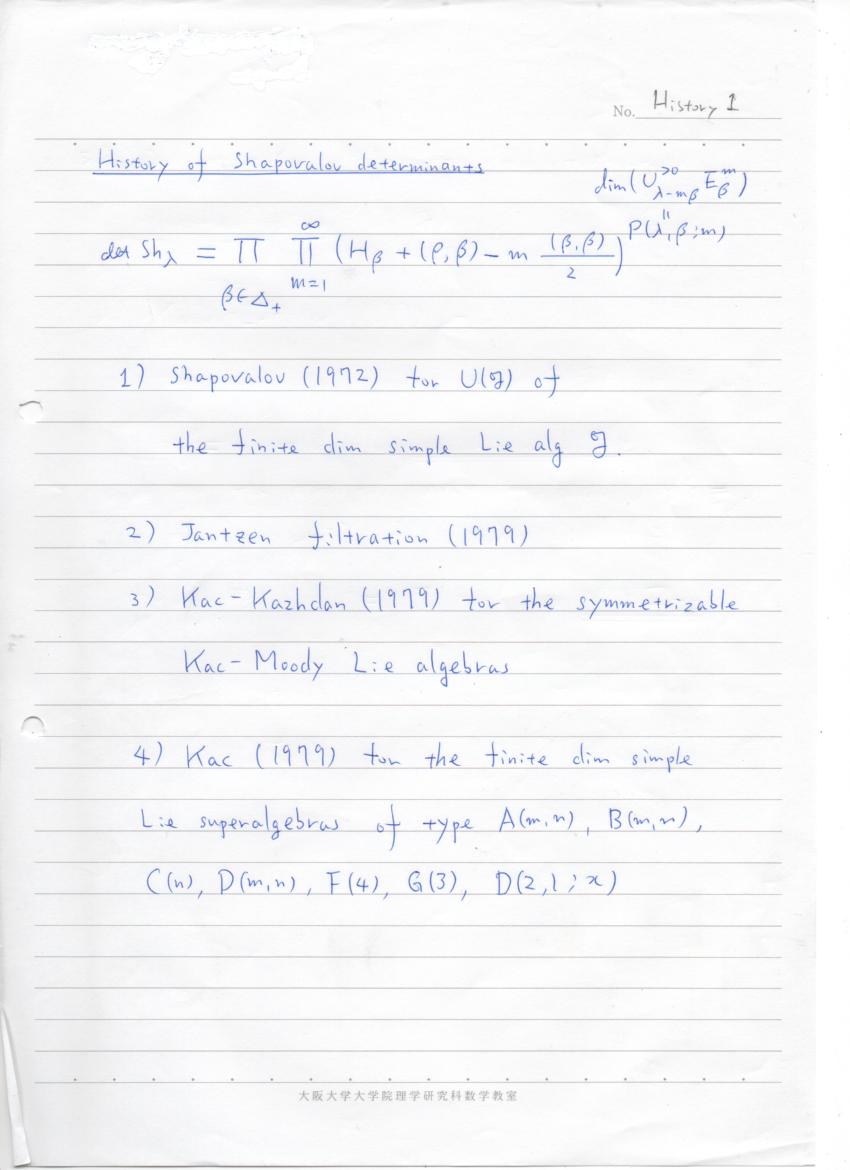 No. History 1
History of Shapovalov determinants
dim(U^{>0}_{λ-mβ} E_β^m)
=
det Sh_λ = ∏_{β∈Δ_+} ∏_{m=1}^{∞} (H_β + (ρ,β) - m (β,β)/2)^{P(λ,β;m)}
1) Shapovalov (1972) for U(𝔤) of
the finite dim simple Lie alg 𝔤.
2) Jantzen filtration (1979)
3) Kac-Kazhdan (1979) for the symmetrizable
Kac-Moody Lie algebras
4) Kac (1979) for the finite dim simple
Lie superalgebras of type A(m,n), B(m,n),
C(n), D(m,n), F(4), G(3), D(2,1;x)
大阪大学大学院理学研究科数学教室